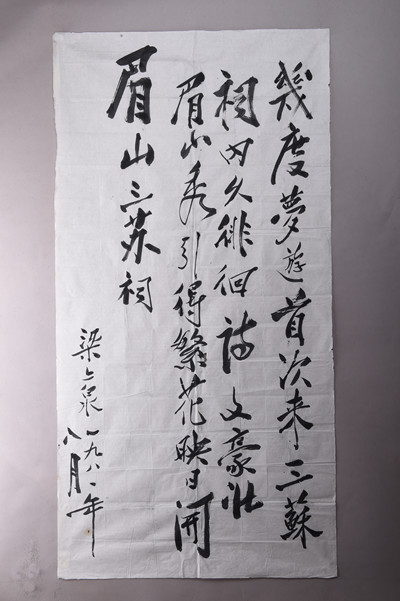 幾度夢遊首次来三蘇
祠内久徘徊詩文豪壮
眉山秀引得繁花映日開
眉山三苏祠
梁上泉一九八一年
八月